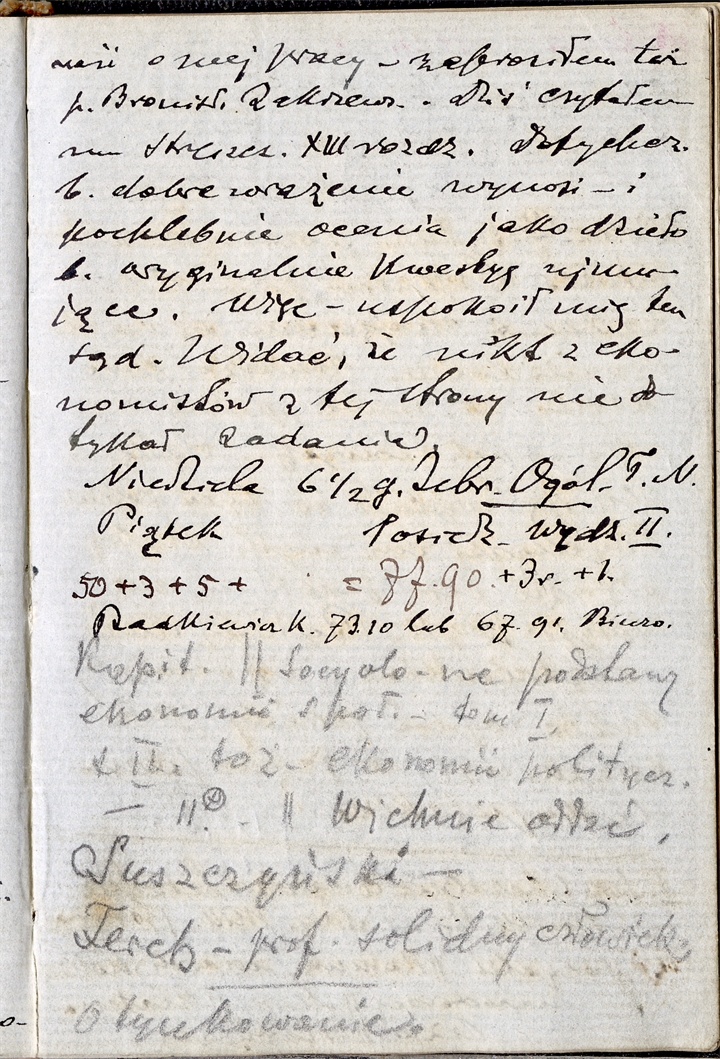 o mej pracy – zaprosiłem też
p. Bronisł. Zakrzews. . Dziś czytałem
mu streszcz. XIII rozdz. Dotychcz.
b. dobre wrażenie wynosi – i
pochlebnie ocenia jako dzieło
b. oryginalnie kwestyę ujmu-
jące. Więc – uspokoił mię ten
sąd. Widać, że nikt z eko-
nomistów z tej strony nie do
tykał zadania.
Niedziela 6 1/2 g. Zebr. Ogól. T. N.
Piątek Posiedz. Wydz. II.
50 + 3 + 5 + = 77.90. + 3r. + 1.
Radkiewicz K. 73.10 lub 67.91. Biuro.
Kapit. || Socyolo-ne podstawy
ekonomii społ. – tom I.
t II. toż – ekonomii politycz.
— II. – || Wichnie oddać,
Suszczyński –
Ferch – prof. solidny człowiek,
Otynkowanie.